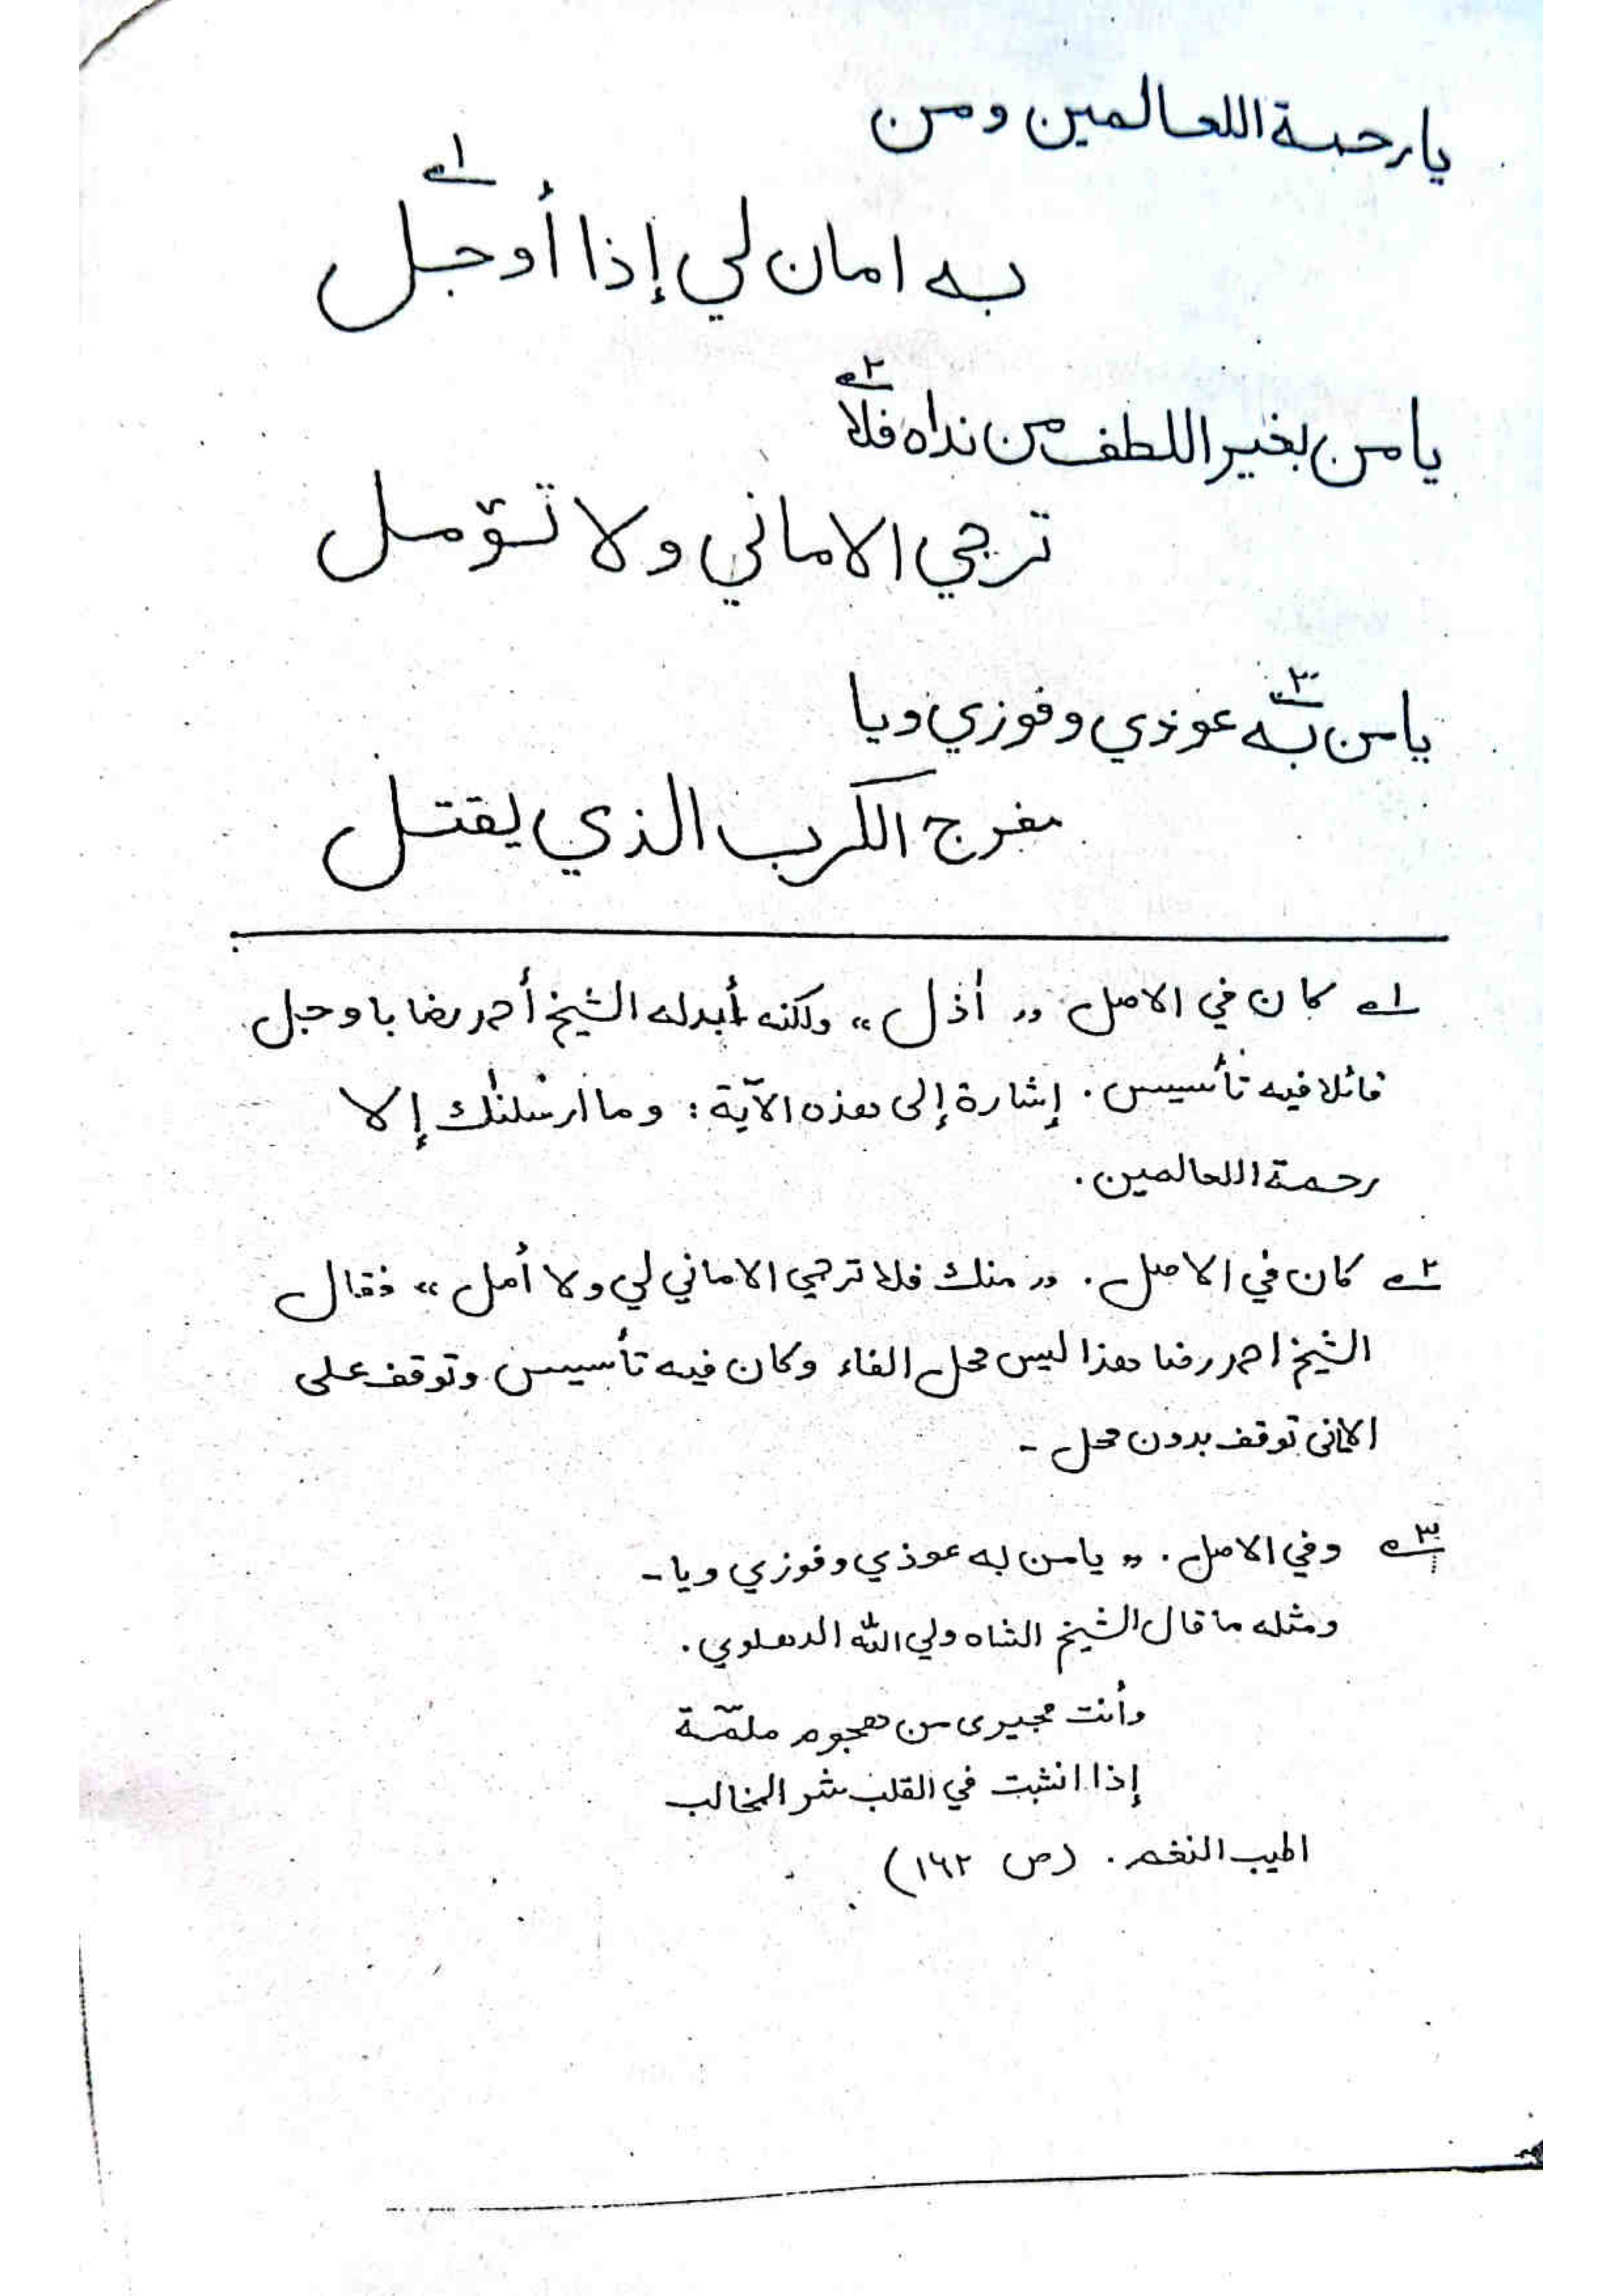 يا رحمة اللعالمين ومن
به امان لي إذا أوجل ١ـه
يا من بغير اللطف من نداه فلا ٢ـه
ترجي الاماني ولا تؤمل
يا من به ٣ـه عوذي وفوزي ويا
مفرج الكرب الذي يقتل
١ـه كان في الاصل „ أذل “ ولكنه أبدله الشيخ أحمد رضا باوجل
قائلا فيه تأسيس. إشارة إلى هذه الآية : وما ارسلنٰك إلا
رحمة اللعالمين.
٢ـه كان في الاصل. „ منك فلا ترجي الاماني لي ولا أمل “ فقال
الشيخ احمد رضا هذا ليس محل الفاء وكان فيه تأسيس وتوقف على
الامانى توقف بدون محل -
٣ـه وفي الاصل. „ يا من به عوذي وفوزي ويا -
ومثله ما قال الشيخ الشاه ولي الله الدهلوي.
وأنت مجيرى من هجوم ملمّة
إذا انشبت في القلب شر المخالب
اطيب النغم. (ص ١٦٢)